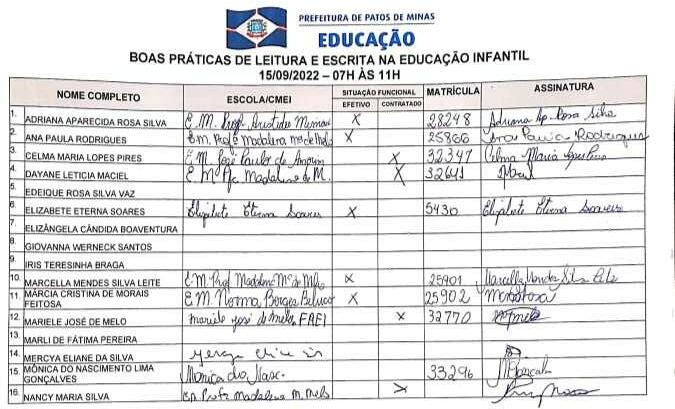 PREFEITURA DE PATOS DE MINAS
EDUCAÇÃO
BOAS PRÁTICAS DE LEITURA E ESCRITA NA EDUCAÇÃO INFANTIL
15/09/2022 – 07H ÀS 11H
NOME COMPLETO ESCOLA/CMEI SITUAÇÃO FUNCIONAL MATRÍCULA ASSINATURA
EFETIVO CONTRATADO
1. ADRIANA APARECIDA ROSA SILVA E.M. Profª X 28248 Adriana Ap. Rosa Silva
2. ANA PAULA RODRIGUES E.M. Profª Madalena Mª de Melo X 25866 Ana Paula Rodrigues
3. CELMA MARIA LOPES PIRES E.M. X 32347 Celma Maria Lopes Pires
4. DAYANE LETICIA MACIEL E. Mª Madalena de M. X 32641
5. EDEIQUE ROSA SILVA VAZ
6. ELIZABETE ETERNA SOARES Elizabete Eterna Soares X 5430 Elizabete Eterna Soares
7. ELIZÂNGELA CÂNDIDA BOAVENTURA
8. GIOVANNA WERNECK SANTOS
9. IRIS TERESINHA BRAGA
10. MARCELLA MENDES SILVA LEITE E.M. Prof Madalena Mª de Melo X 25901 Marcella Mendes Silva Leite
11. MÁRCIA CRISTINA DE MORAIS E.M. Norma Borges X 25902
FEITOSA
12. MARIELE JOSÉ DE MELO mariele josé de melo X 32770
13. MARLI DE FÁTIMA PEREIRA
14. MERCYA ELIANE DA SILVA
15. MÔNICA DO NASCIMENTO LIMA Monica do Nasc. 33296
GONÇALVES
16. NANCY MARIA SILVA Profª Madalena M. Melo X